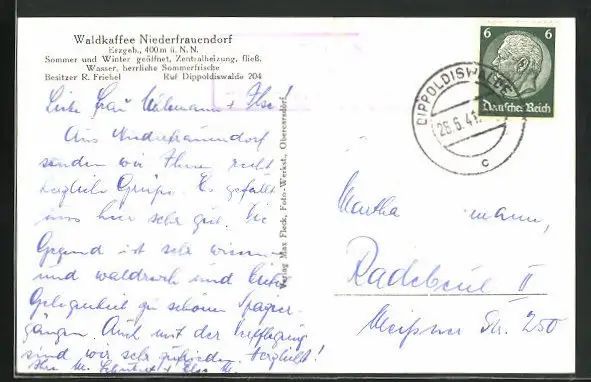 Waldkaffee Niederfrauendorf
Erzgeb., 400 m ü. N. N.
Sommer und Winter geöffnet, Zentralheizung, fließ.
Wasser, herrliche Sommerfrische
Besitzer R. Friebel Ruf Dippoldiswalde 204
Liebe Frau + Ilse!
Aus Niederfrauendorf
senden wir Ihnen recht
herzliche Grüße. Es gefällt
uns hier sehr gut. Die
Gegend ist sehr
und waldreich und
Gelegenheit zu schönen Spazier-
gängen. Auch mit der Verpflegung
sind wir sehr zufrieden. Herzlichst!
Verlag Max Fleck, Foto-Werkst., Obercarsdorf
6 6
Deutsches Reich
DIPPOLDISWALDE
26.6.41
c
Martha mann,
Radebeul II
Meißner Str. 250